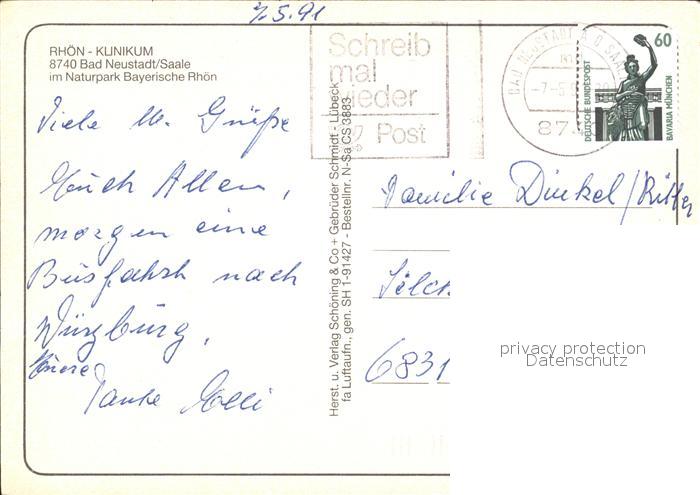 7.5.91
RHÖN - KLINIKUM
8740 Bad Neustadt/Saale
im Naturpark Bayerische Rhön
Viele lb. Grüße
Euch Allen,
morgen eine
Busfahrt nach
Würzburg,
Eure
Tante Elli
Herst. u. Verlag Schöning & Co + Gebrüder Schmidt - Lübeck
fa Luftaufn., gen. SH 1-91427 - Bestellnr. N-Sa CS 3883
Schreib
mal
wieder
Post
BAD NEUSTADT A D SAALE
-7-5
874
60
DEUTSCHE BUNDESPOST
BAVARIA MÜNCHEN
Familie Dinkel/Ritter
6831
privacy protection
Datenschutz